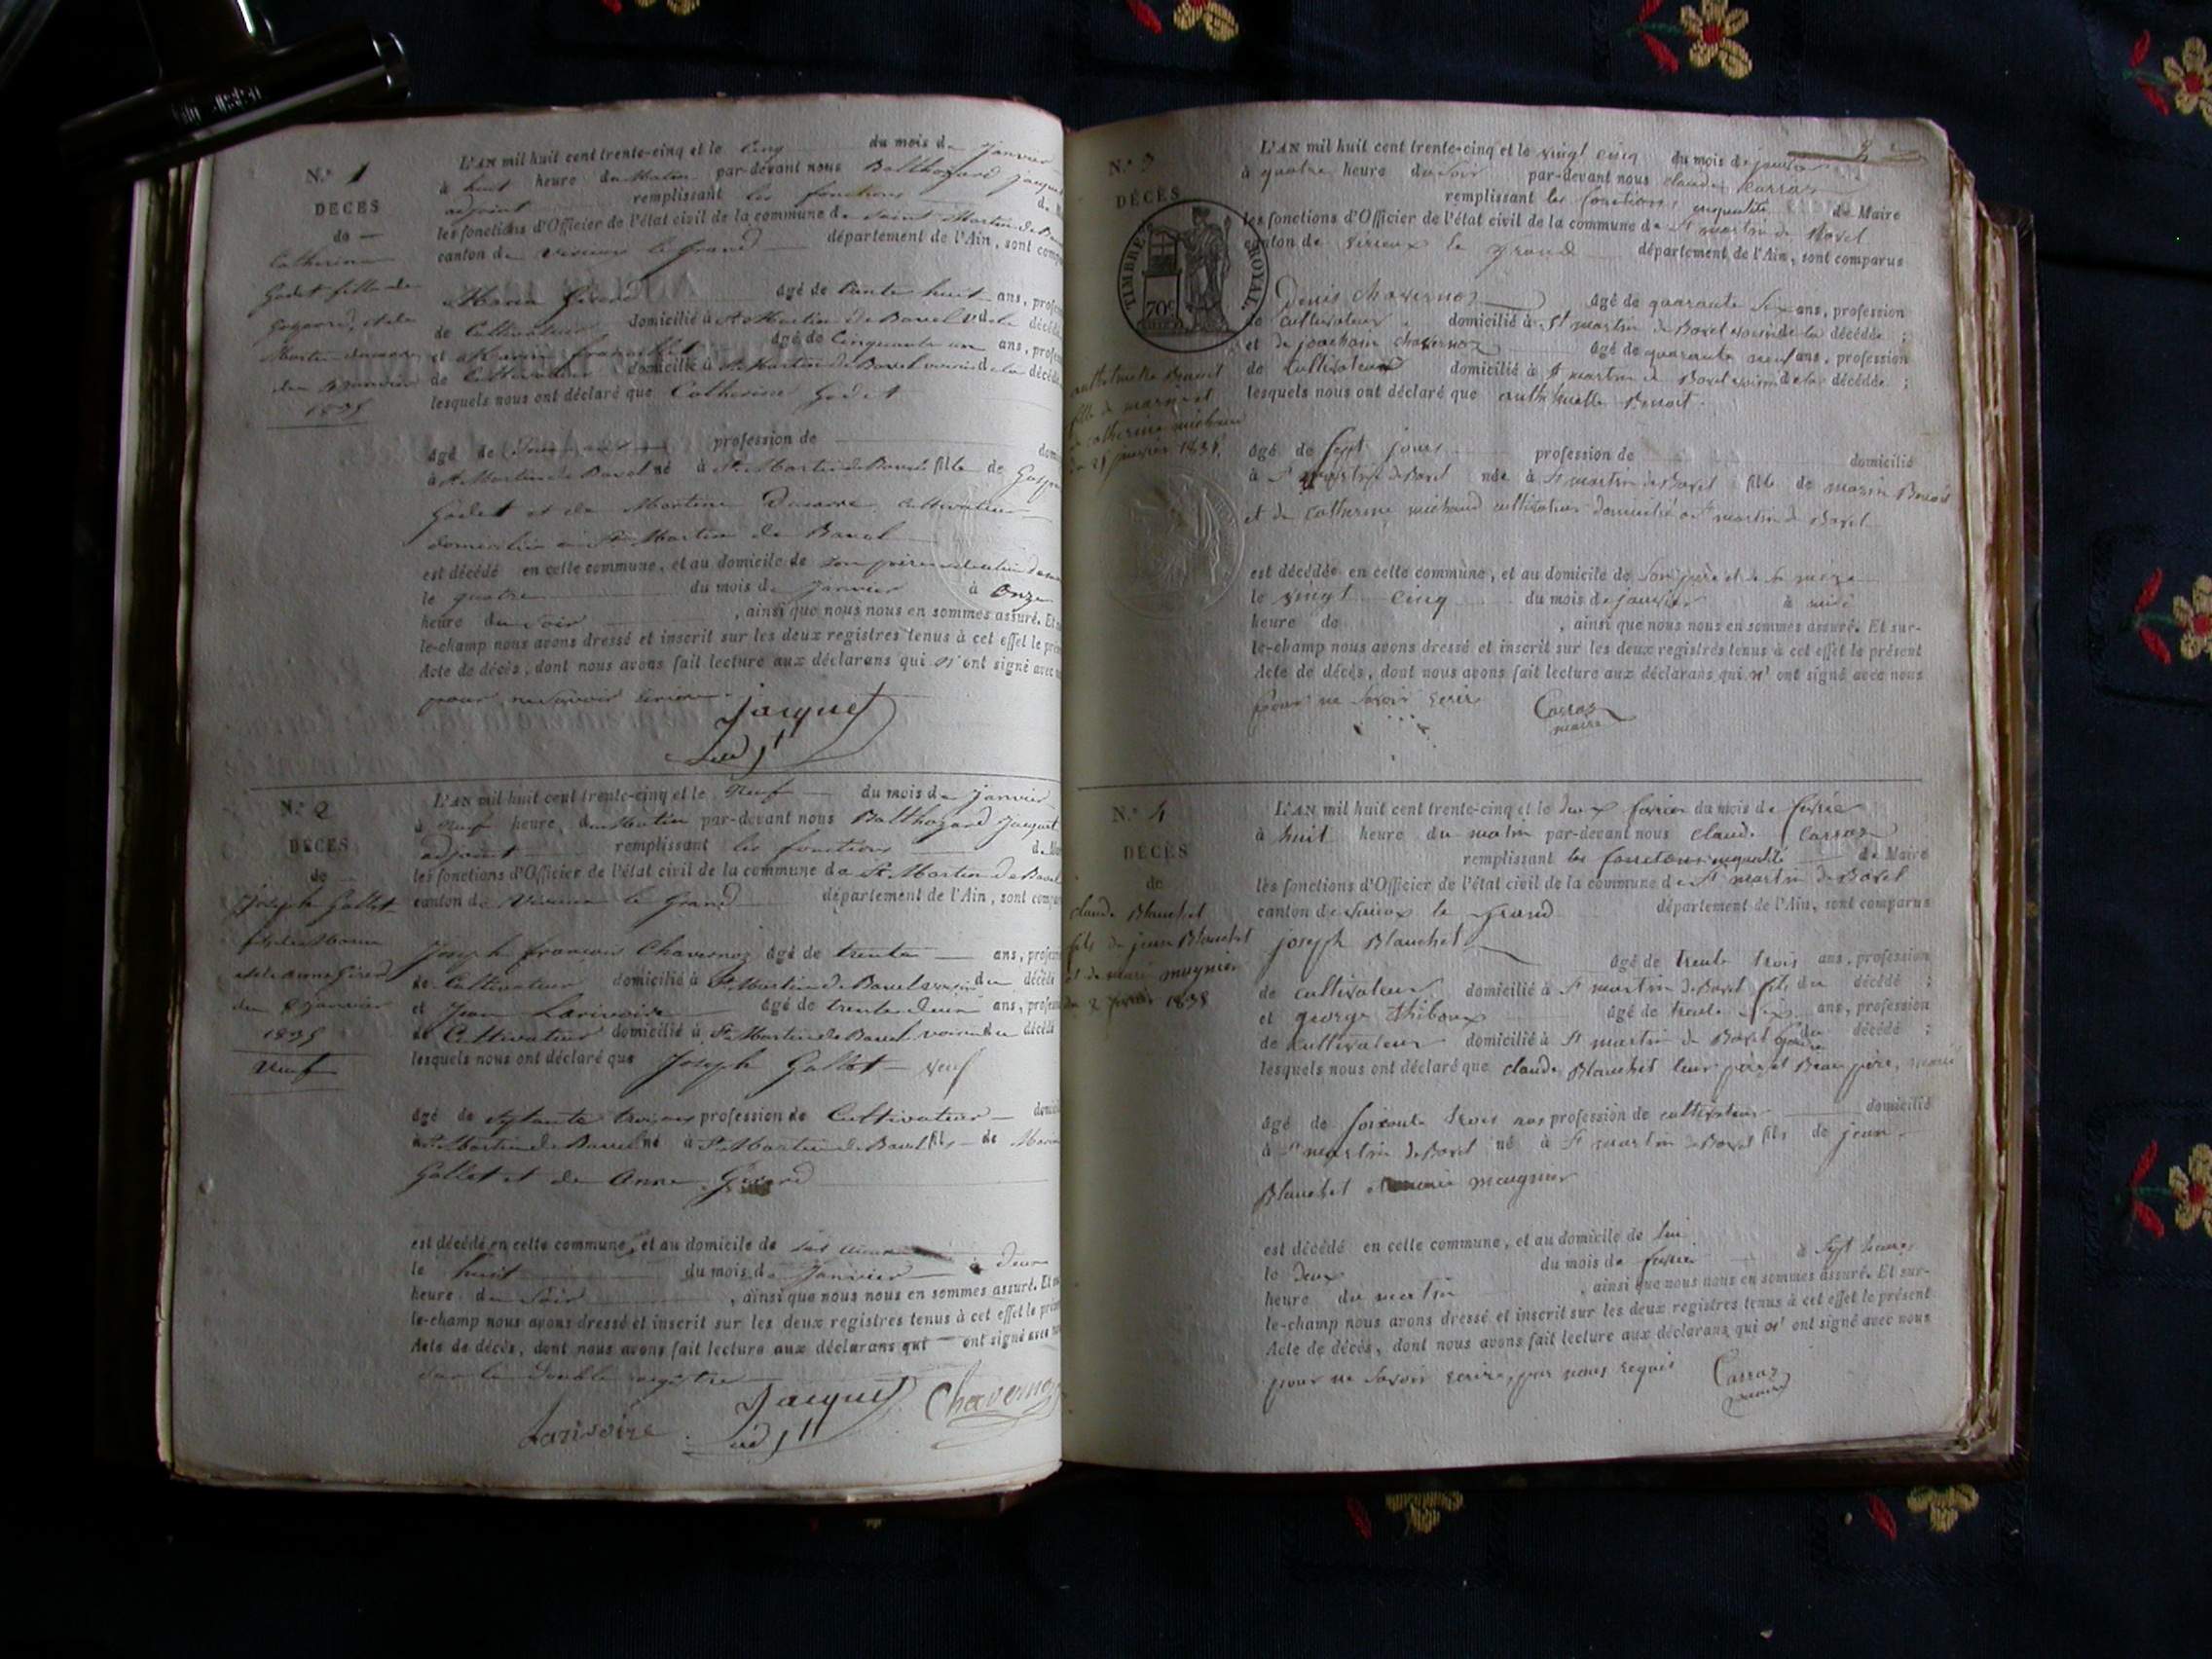 N.° 1
DÉCÈS
de
Catherine
Godet fille de
Gaspard, et de
du 4 janvier
1835
L'AN mil huit cent trente-cinq et le cinq du mois de janvier
à huit heure du Matin par-devant nous Balthazard Jacquet
adjoint remplissant les fonctions de
les fonctions d'Officier de l'état civil de la commune de Saint Martin de
canton de Virieux le Grand département de l'Ain, sont
Marin Girard âgé de trente huit ans,
de Cultivateur domicilié à St Martin de Bavel
et âgé de Cinquante un ans,
de Cultivateur domicilié à St Martin de Bavel voisin de la
lesquels nous ont déclaré que Catherine Godet
âgé de profession de
à St Martin de Bavel né à St Martin de Bavel fille de
Godet et de Martine Ducarre cultivateur
domicilié à St Martin de Bavel
est décédé en cette commune, et au domicile de son père
le quatre du mois de janvier à onze
heure du soir , ainsi que nous nous en sommes assuré. Et
le-champ nous avons dressé et inscrit sur les deux registres tenus à cet effet le
Acte de décès, dont nous avons fait lecture aux déclarans qui n'ont signé avec
pour ne savoir écrire
Jacquet
adjt
N.° 2
DÉCÈS
de
Joseph Gallet
fils de
et de Anne Girard
du 8 janvier
1835
Veuf
L'AN mil huit cent trente-cinq et le Neuf du mois de janvier
à neuf heure du Matin par-devant nous Balthazard Jacquet
adjoint remplissant les fonctions
les fonctions d'Officier de l'état civil de la commune de St Martin de Bavel
canton de Virieux le Grand département de l'Ain, sont
Joseph françois Chavernoz âgé de trente ans,
de Cultivateur domicilié à St Martin de Bavel voisin du décédé
et Jean Larivoire âgé de trente deux ans,
de Cultivateur domicilié à St Martin de Bavel voisin du décédé
lesquels nous ont déclaré que Joseph Gallet veuf
âgé de septante trois ans profession de Cultivateur
à St Martin de Bavel né à St Martin de Bavel fils de
Gallet et de Anne Girard
est décédé en cette commune, et au domicile de
le huit du mois de janvier à deux
heure du soir , ainsi que nous nous en sommes assuré. Et
le-champ nous avons dressé et inscrit sur les deux registres tenus à cet effet le
Acte de décès, dont nous avons fait lecture aux déclarans qui ont signé avec
sur le double registre
Larivoire Jacquet adjt Chavernoz
N.° 3
DÉCÈS
TIMBRE ROYAL.
70c
anthelmette Benoit
fille de marin et
de catherine michaud
du 25 janvier 1835
L'AN mil huit cent trente-cinq et le vingt cinq du mois de janvier
à quatre heure du soir par-devant nous claude Carraz
remplissant les fonctions en qualité de Maire
les fonctions d'Officier de l'état civil de la commune de St martin de Bavel
canton de virieux le grand département de l'Ain, sont comparus
Denis chavernoz âgé de quarante six ans, profession
de cultivateur domicilié à St martin de Bavel voisin de la décédée ;
et de joachim chavernoz âgé de quarante neuf ans, profession
de cultivateur domicilié à St martin de Bavel voisin de la décédée ;
lesquels nous ont déclaré que Benoit
âgé de sept jours profession de domicilié
à St martin de Bavel née à St martin de Bavel fille de marin Benoit
et de catherine michaud cultivateur domicilié à St martin de Bavel
est décédée en cette commune, et au domicile de son père et de sa mère
le vingt cinq du mois de janvier à midi
heure de , ainsi que nous nous en sommes assuré. Et sur-
le-champ nous avons dressé et inscrit sur les deux registres tenus à cet effet le présent
Acte de décès, dont nous avons fait lecture aux déclarans qui n'ont signé avec nous
pour ne savoir écrire
Carraz
maire
N.° 4
DÉCÈS
de
claude Blanchet
fils de jean Blanchet
et de marie mognier
du 2 février 1835
L'AN mil huit cent trente-cinq et le deux février du mois de février
à huit heure du matin par-devant nous claude Carraz
remplissant les fonctions en qualité de Maire
les fonctions d'Officier de l'état civil de la commune de St martin de Bavel
canton de virieux le grand département de l'Ain, sont comparus
joseph Blanchet âgé de trente trois ans, profession
de cultivateur domicilié à St martin de Bavel fils du décédé ;
et george thiboux âgé de trente six ans, profession
de cultivateur domicilié à St martin de Bavel gendre du décédé ;
lesquels nous ont déclaré que claude Blanchet leur père et Beau père,
âgé de soixante trois ans profession de cultivateur domicilié
à St martin de Bavel né à St martin de Bavel fils de jean
Blanchet et marie mougnier
est décédé en cette commune, et au domicile de lui
le deux du mois de février à sept heures
heure du matin , ainsi que nous nous en sommes assuré. Et sur-
le-champ nous avons dressé et inscrit sur les deux registres tenus à cet effet le présent
Acte de décès, dont nous avons fait lecture aux déclarans qui n'ont signé avec nous
pour ne savoir écrire, par nous requis
Carraz
maire